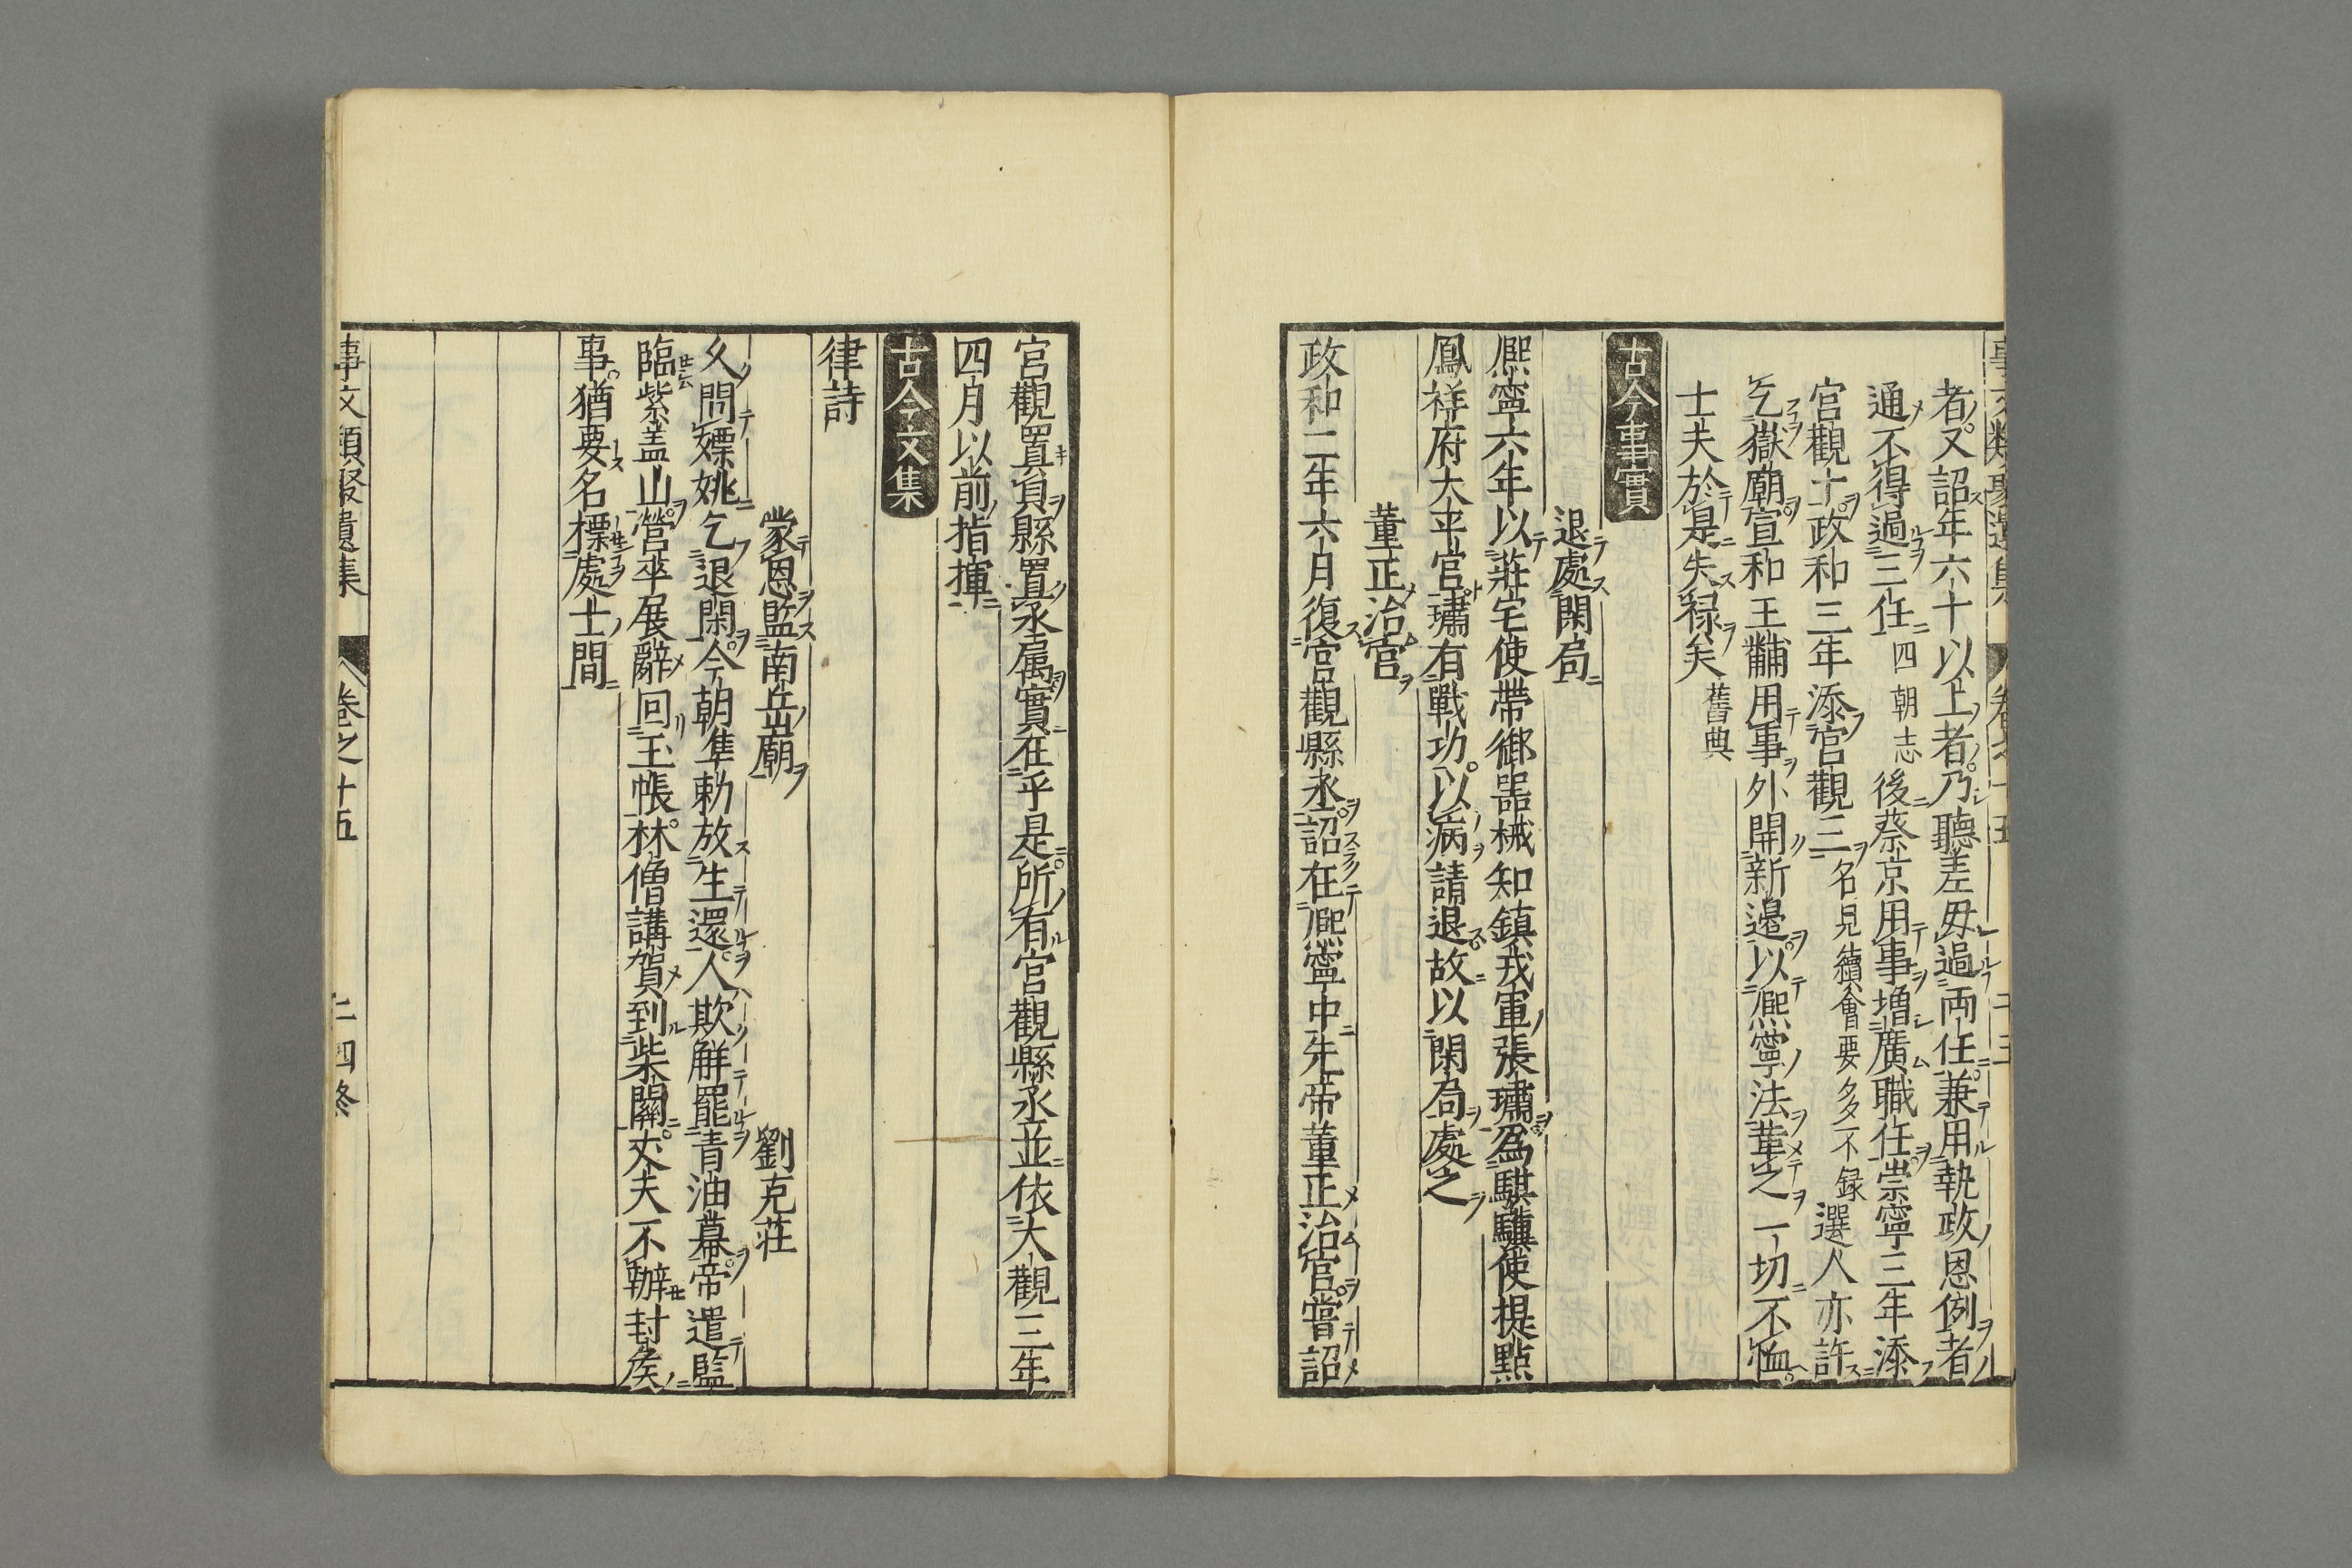 者又詔年六十以上者乃聽差毋過両任兼用執政恩例者
通不得過三任四朝志後蔡京用事増廣職任崇寧三年添
官觀十政和三年添官觀三名見續會要多不録選人亦許
乞嶽廟宣和王黼用事外開新邊以熈寧法葉之一切不恤
士夫於是失祿矣舊典
古今事實
退處閑局
熈寧六年以莊宅使帶御噐械知鎮戎軍張璹爲騏驥使提點
鳳祥府大平宮璹有戰功以病請退故以閑局處之
董正治官
政和二年六月復宮觀縣丞詔在熈寧中先帝董正治官嘗詔
宮觀置員縣置丞属實在乎是所有宮觀縣丞並依大觀三年
四月以前指揮
古今文集
律詩
蒙恩監南岳廟
劉克荘
久問嫖姚乞退閑今朝隼勅放生還人欺觧罷青油幕帝遣監
臨紫盖山營卒展辭回玉帳林僧講賀到柴關丈夫不辦封矦
事猶要名標處士間
事文類聚遺集
卷之十五
二四終